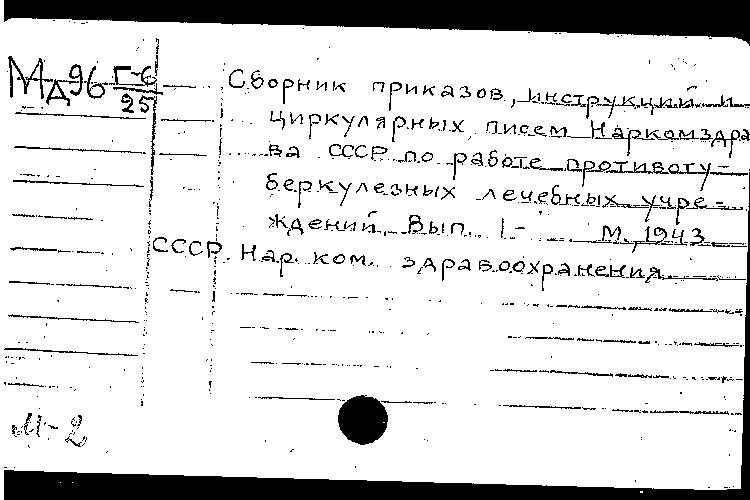 Мд96 Г-6/25
Сборник приказов, инструкций и
циркулярных писем Наркомздра
ва СССР по работе противоту-
беркулезных лечебных учре-
ждений, Вып. 1- М., 1943
СССР. Нар. ком. здравоохранения
М-2